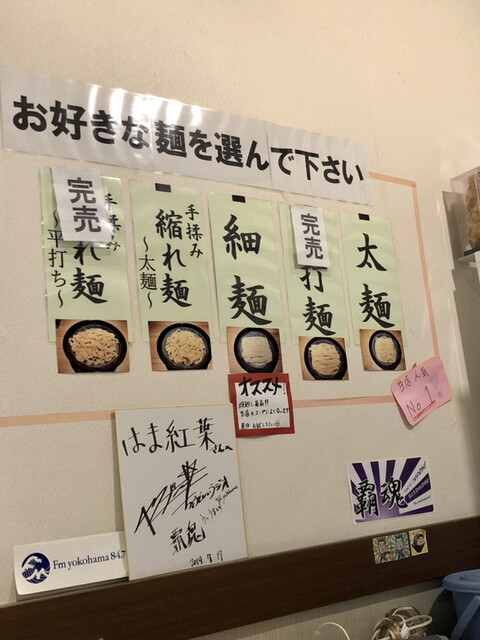 お好きな麺を選んで下さい
太麺
完売
打麺
細麺
手揉み
縮れ麺
～太麺～
完売
手揉み
れ麺
～平打ち～
オススメ!
当店人気
No 1
はま紅葉さんへ
覇魂
2019.7.17
覇魂
Fm yokohama 84.7